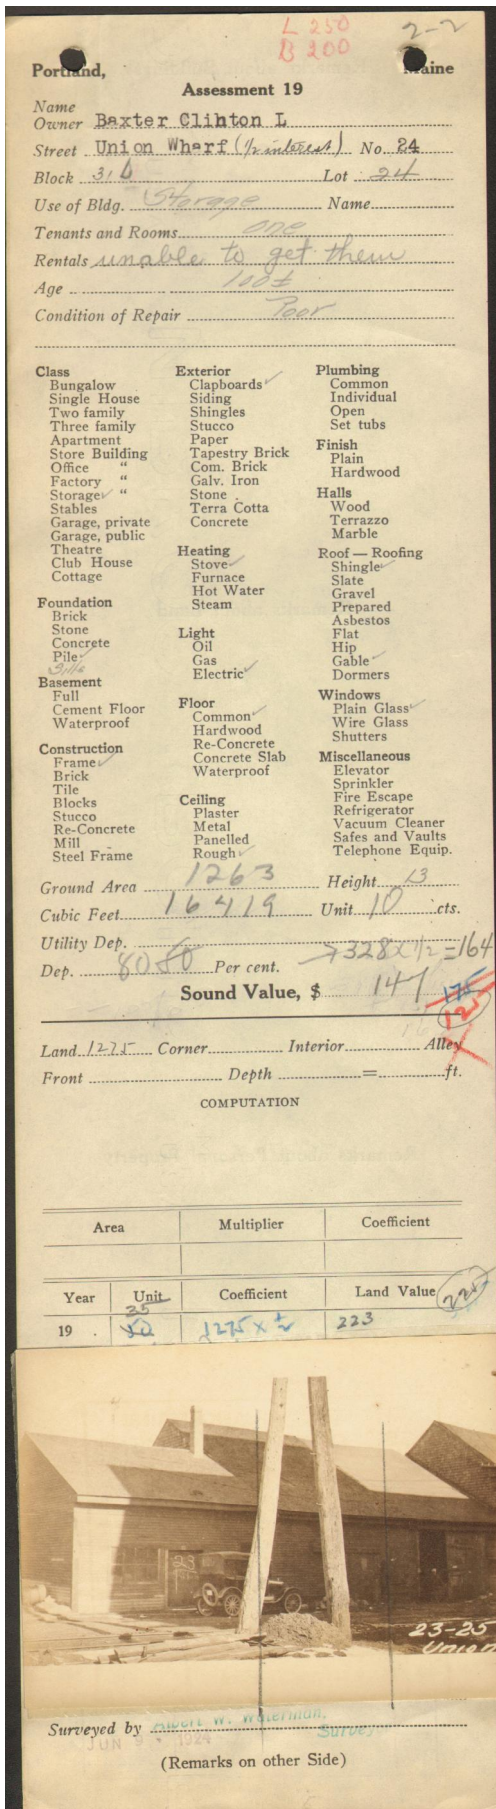 L 250
B 200
2-2
Portland, Maine
Assessment 19
Name
Owner Baxter Clihton L
Street Union Wharf (1/2 interest) No. 24
Block 31D Lot 24
Use of Bldg. Storage Name
Tenants and Rooms one
Rentals unable to get them
Age 100±
Condition of Repair Poor
Class
Bungalow
Single House
Two family
Three family
Apartment
Store Building
Office "
Factory "
Storage ✓ "
Stables
Garage, private
Garage, public
Theatre
Club House
Cottage
Foundation
Brick
Stone
Concrete
Pile ✓
Sills
Basement
Full
Cement Floor
Waterproof
Construction
Frame ✓
Brick
Tile
Blocks
Stucco
Re-Concrete
Mill
Steel Frame
Exterior
Clapboards ✓
Siding
Shingles
Stucco
Paper
Tapestry Brick
Com. Brick
Galv. Iron
Stone
Terra Cotta
Concrete
Heating
Stove ✓
Furnace
Hot Water
Steam
Light
Oil
Gas
Electric ✓
Floor
Common ✓
Hardwood
Re-Concrete
Concrete Slab
Waterproof
Ceiling
Plaster
Metal
Panelled
Rough ✓
Plumbing
Common
Individual
Open
Set tubs
Finish
Plain
Hardwood
Halls
Wood
Terrazzo
Marble
Roof — Roofing
Shingle ✓
Slate
Gravel
Prepared
Asbestos
Flat
Hip
Gable ✓
Dormers
Windows
Plain Glass ✓
Wire Glass
Shutters
Miscellaneous
Elevator
Sprinkler
Fire Escape
Refrigerator
Vacuum Cleaner
Safes and Vaults
Telephone Equip.
Ground Area 1263 Height 13
Cubic Feet 16419 Unit 10 cts.
Utility Dep.
328 x 1/2 = 164
Dep. 80 80 Per cent.
Sound Value, $ 147 175
125
Land 1275 Corner Interior Alley
Front Depth = ft.
COMPUTATION
Area Multiplier Coefficient
Year Unit Coefficient Land Value 225
35
19 50 1275 x 1/2 223
23
23-25
Union
Surveyed by Albert W. Waterman,
Surveyor
JUN 1924
(Remarks on other Side)